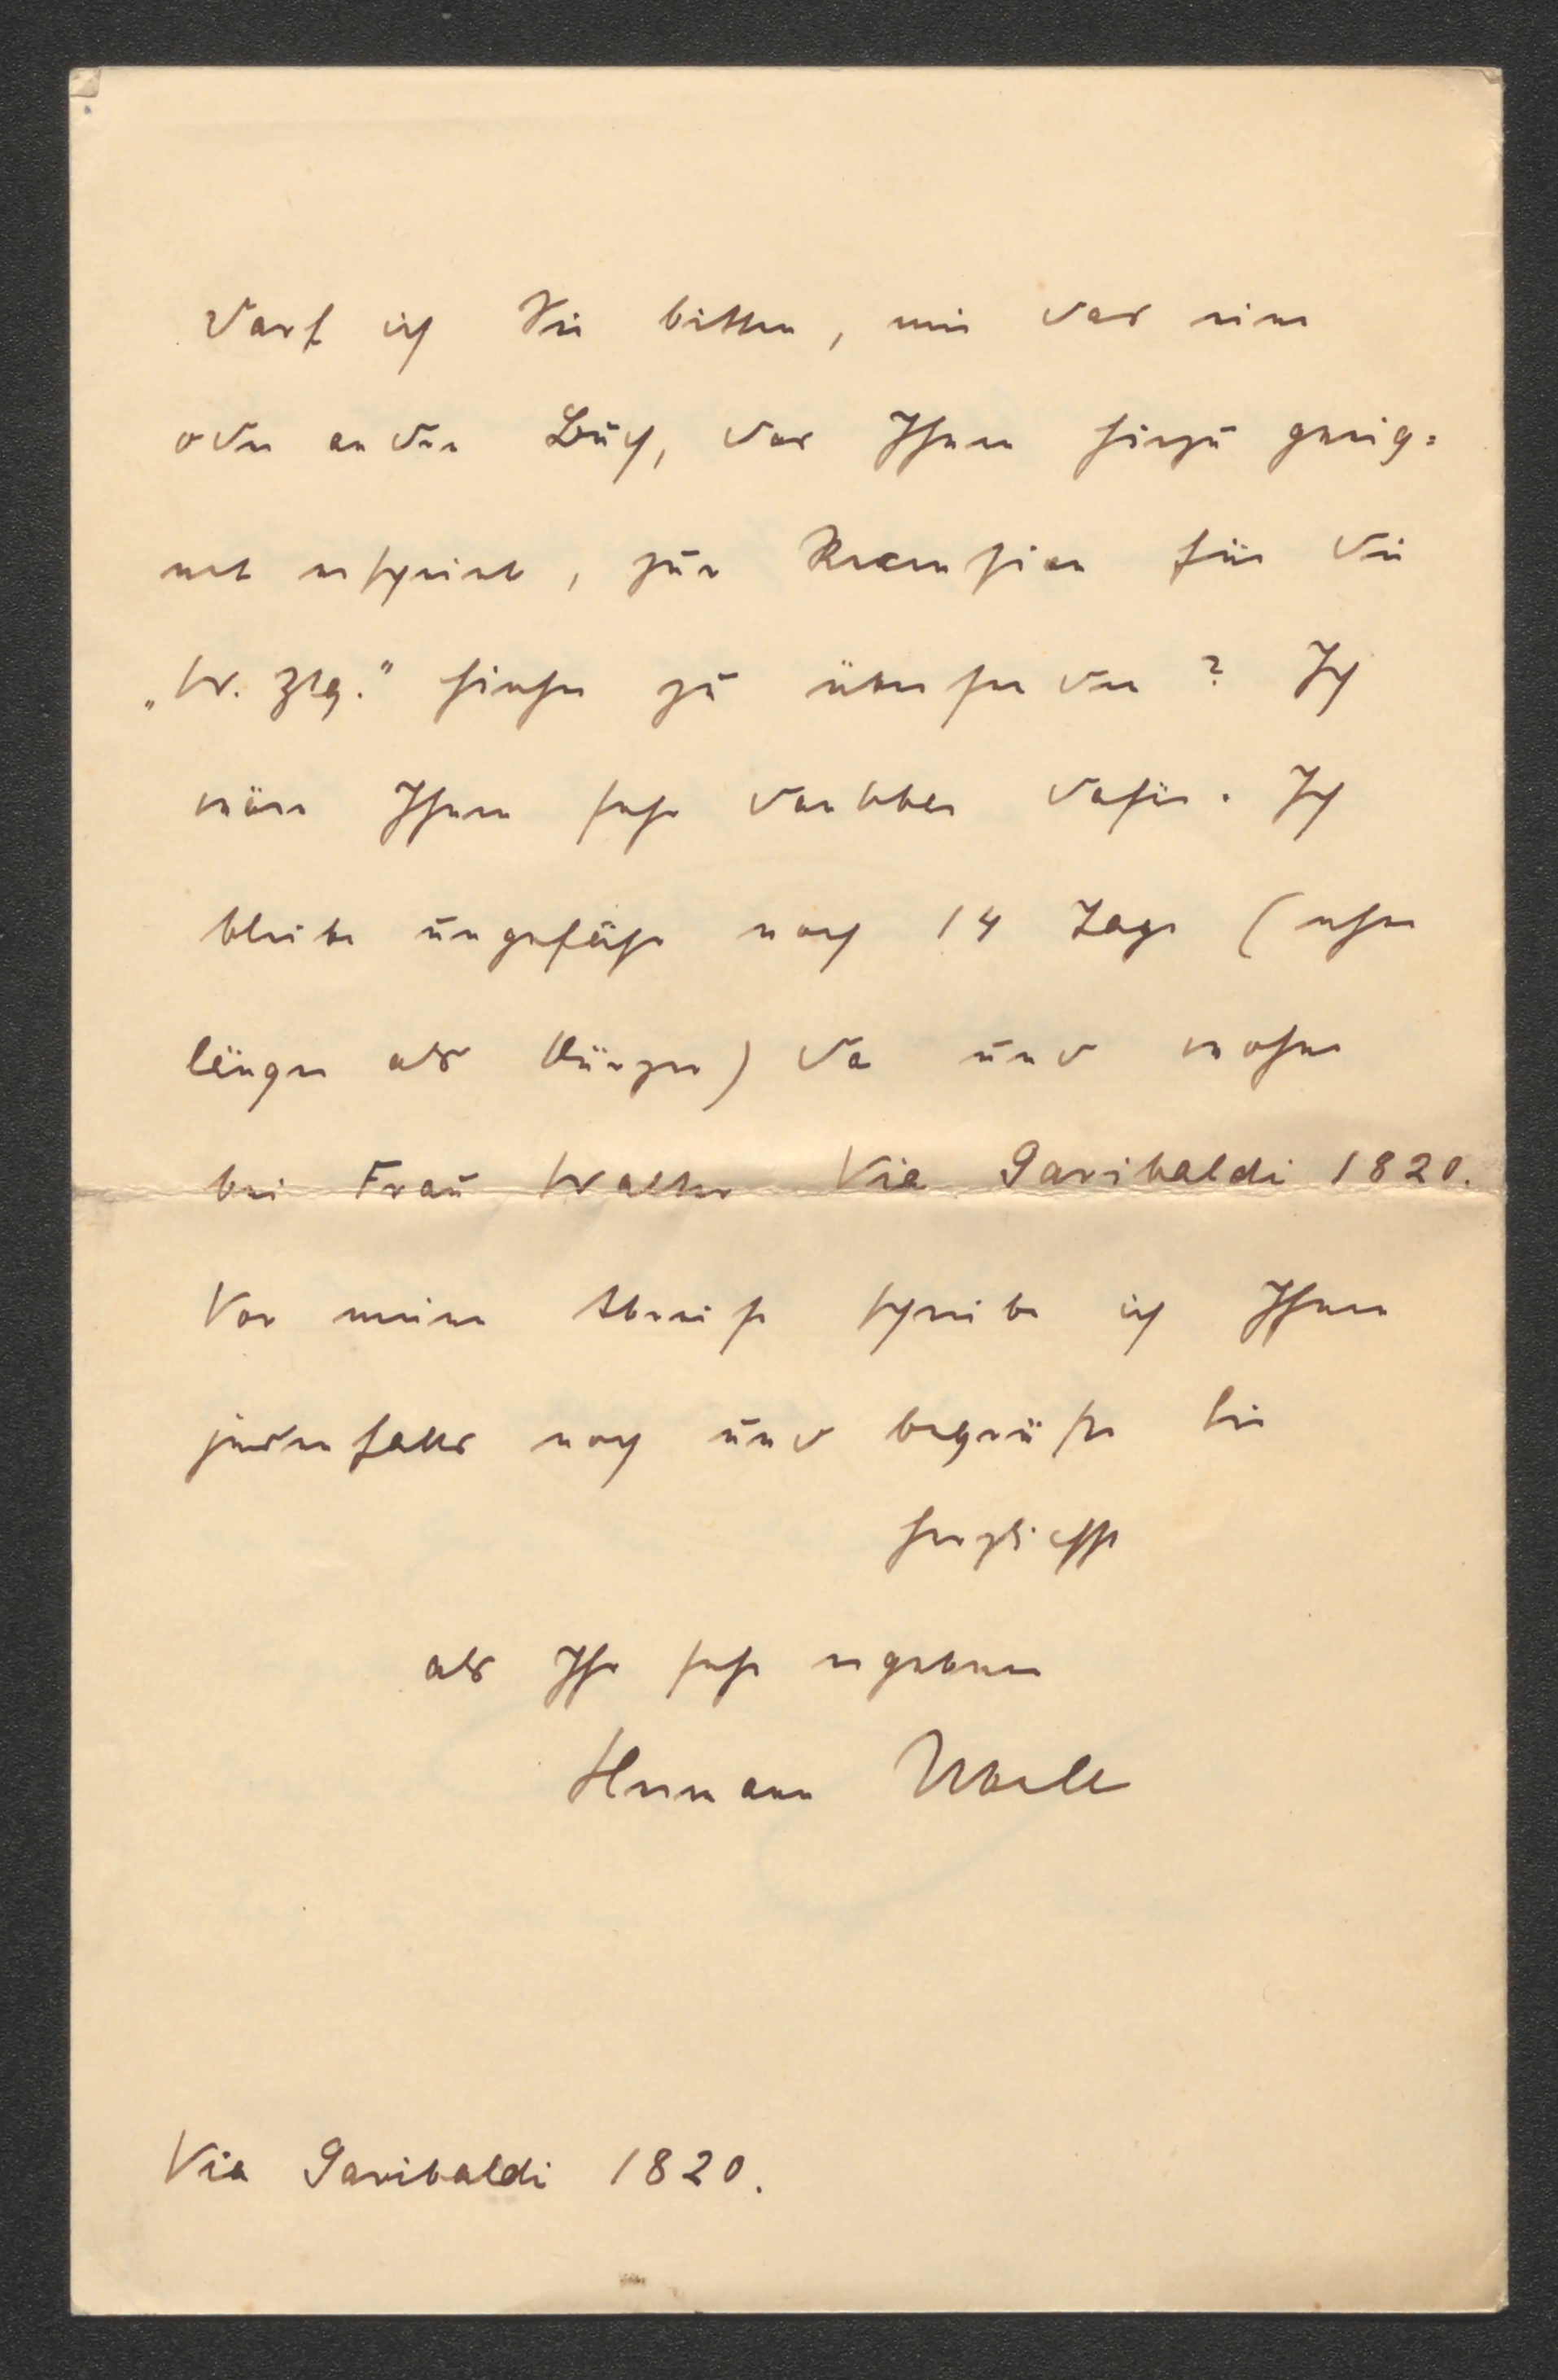 Darf ich Sie bitten, mir das eine
oder andere Buch, das Ihnen hiezu geeig=
net erscheint, zur Recension für die
„W. Ztg." hieher zu übersenden? Ich
wäre Ihnen sehr dankbar dafür. Ich
bleibe ungefähr noch 14 Tage (eher
länger als kürzer) da und wohne
bei Frau Walter Via Garibaldi 1820.
Vor meiner Abreise schreibe ich Ihnen
jedenfalls noch und begrüße Sie
herzlichst
als Ihr sehr ergebener
Hermann
Via Garibaldi 1820.